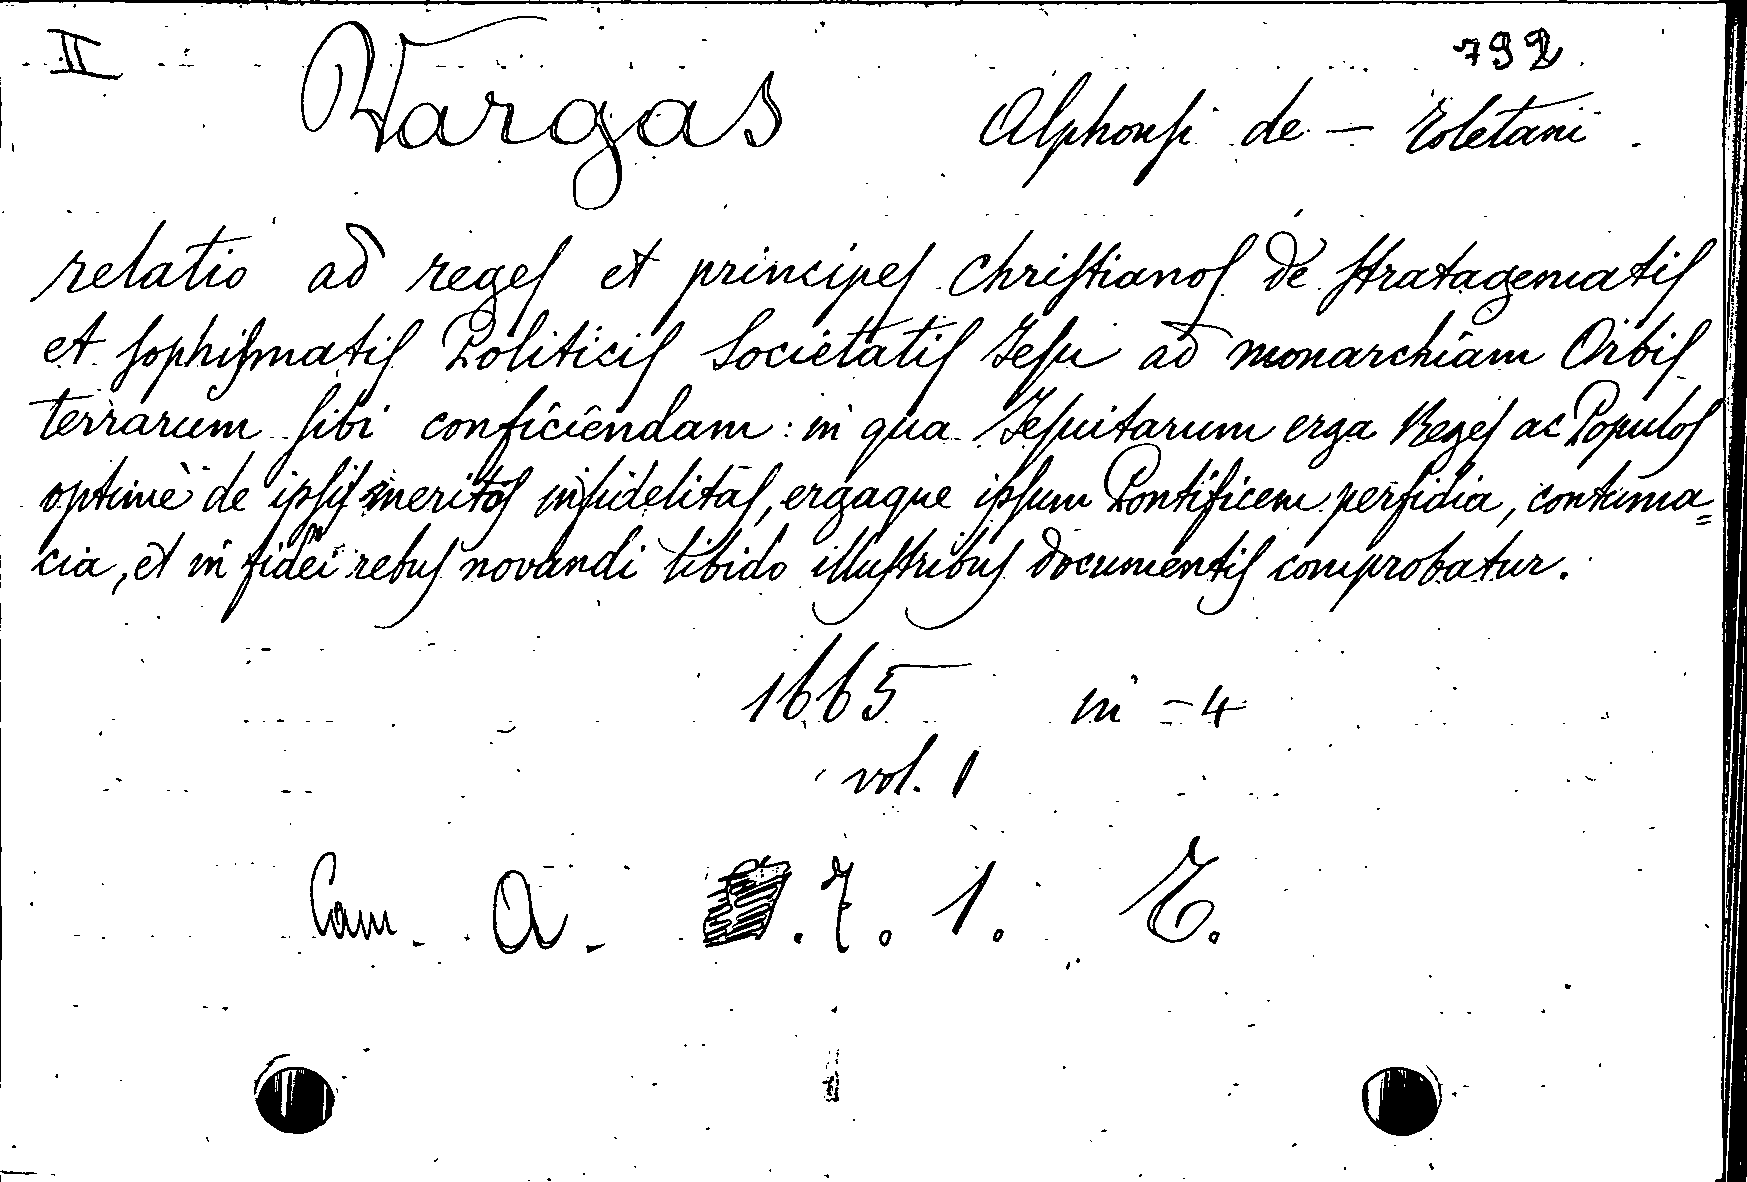 II
792
Vargas Alphonsi de - Toletani
relatio ad reges et principes Christianos de stratagematis
et sophismatis Politicis Societatis Jesu ad monarchiam Orbis
terrarum sibi conficiendam: in qua Jesuitarum erga Reges ac Populos
optimè de ipsis meritos infidelitas, ergaque ipsum Pontificem perfidia, contuma=
cia, et in fidei rebus novandi libido illustribus documentis comprobatur.
1665 in-4
vol. 1
Cam. A. .7. 1.